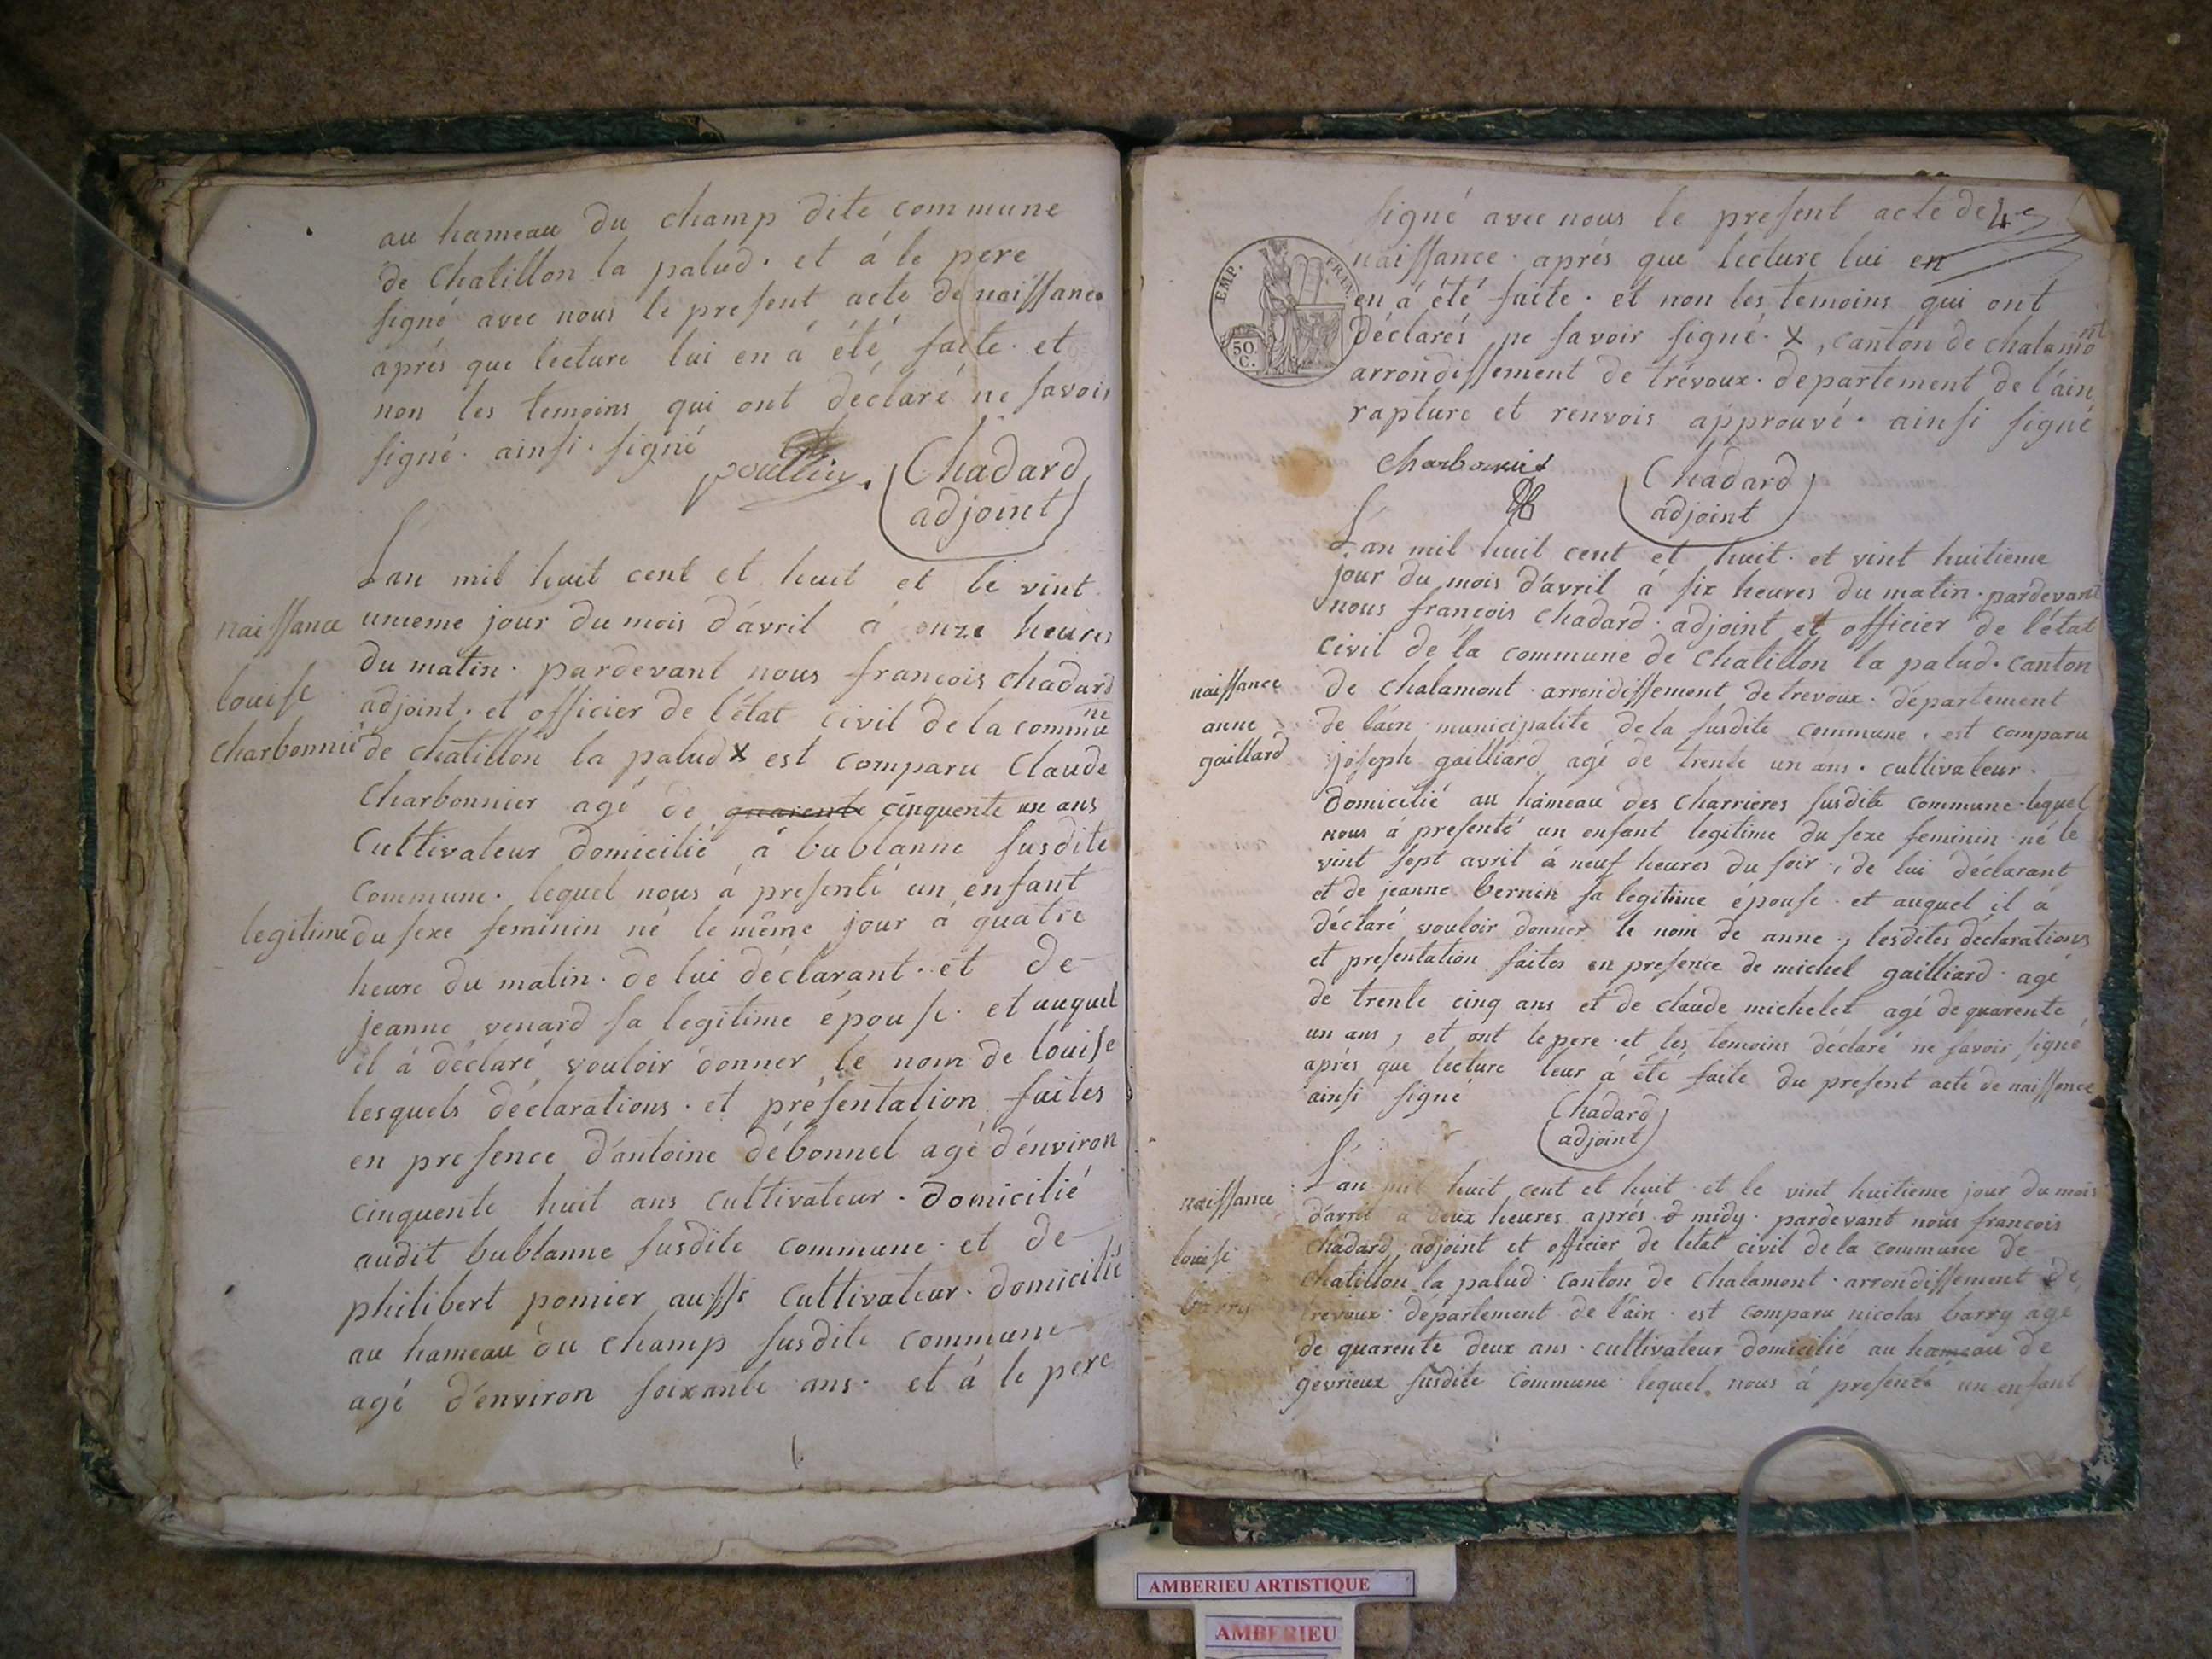 au hameau du champ dite commune
de Chatillon la palud. et á le pere
signé avec nous le present acte de naissance
aprés que lecture lui en á été faite. et
non les temoins qui ont déclaré ne savoir
signé. ainsi. signé
poullin. Chadard
adjoint
L'an mil huit cent et huit et le vint
unieme jour du mois d'avril á onze heures
du matin. pardevant nous francois chadard
adjoint. et officier de l'état civil de la commune
de chatillon la palud x est comparu Claude
Charbonnier agé de quarente cinquente un ans
Cultivateur domicilié á bublanne susdite
Commune. lequel nous á presenté un enfant
legitime du sexe feminin né le même jour á quatre
heure du matin. de lui déclarant. et de
jeanne venard sa legitime épouse. et auquel
il á déclaré vouloir donner le nom de louise
lesquels déclarations. et présentation faites
en presence d'antoine débonnel agé d'énviron
cinquente huit ans cultivateur. domicilié
audit bublanne susdite commune. et de
philibert pomier aussi cultivateur. domicilié
au hameau du champ susdite commune
agé d'énviron soixante ans. et á le pere
naissance
louise
charbonnié
signé avec nous le present acte de 4e
naissance. aprés que lecture lui en
en á été faite. et non les temoins qui ont
déclarés ne savoir signé. x, canton de chalamont
arrondissement de trévoux. departement de l'áin
rapture et renvois approuvé. ainsi signé
EMP. FRAN.
50
C.
Charbonnié Chadard
adjoint
L'an mil huit cent et huit. et vint huitieme
jour du mois d'avril á six heures du matin. pardevant
nous francois Chadard. adjoint et officier de l'état
civil de la commune de Chatillon la palud. canton
de Chalamont. arrondissement de trevoux. département
de l'áin municipalite de la susdite commune. est comparu
joseph gailliard agé de trente un ans. cultivateur.
domicilié au hameau des Charrieres susdite commune. lequel
nous á presenté un enfant legitime du sexe feminin né le
vint sept avril á neuf heures du soir., de lui déclarant
et de jeanne bernin sa legitime épouse. et auquel il á
déclaré vouloir donner le nom de anne., lesdites déclarations
et presentation faites en presence de michel gailliard. agé
de trente cinq ans et de claude michelet agé de quarente
un ans, et ont le pere. et les temoins déclaré ne savoir signé
aprés que lecture leur á été faite du present acte de naissance
ainsi signé Chadard
adjoint
naissance
anne
gaillard
L'an mil huit cent et huit. et le vint huitieme jour du mois
d'avril a deux heures aprés midy. pardevant nous francois
Chadard adjoint et officier de l'état civil de la commune de
Chatillon la palud. canton de Chalamont. arrondissement de
trevoux. département de l'áin. est comparu nicolas barry agé
de quarente deux ans. cultivateur domicilié au hameau de
gevrieux susdite Commune. lequel. nous á presenté un enfant
naissance
louise
AMBERIEU ARTISTIQUE
AMBERIEU